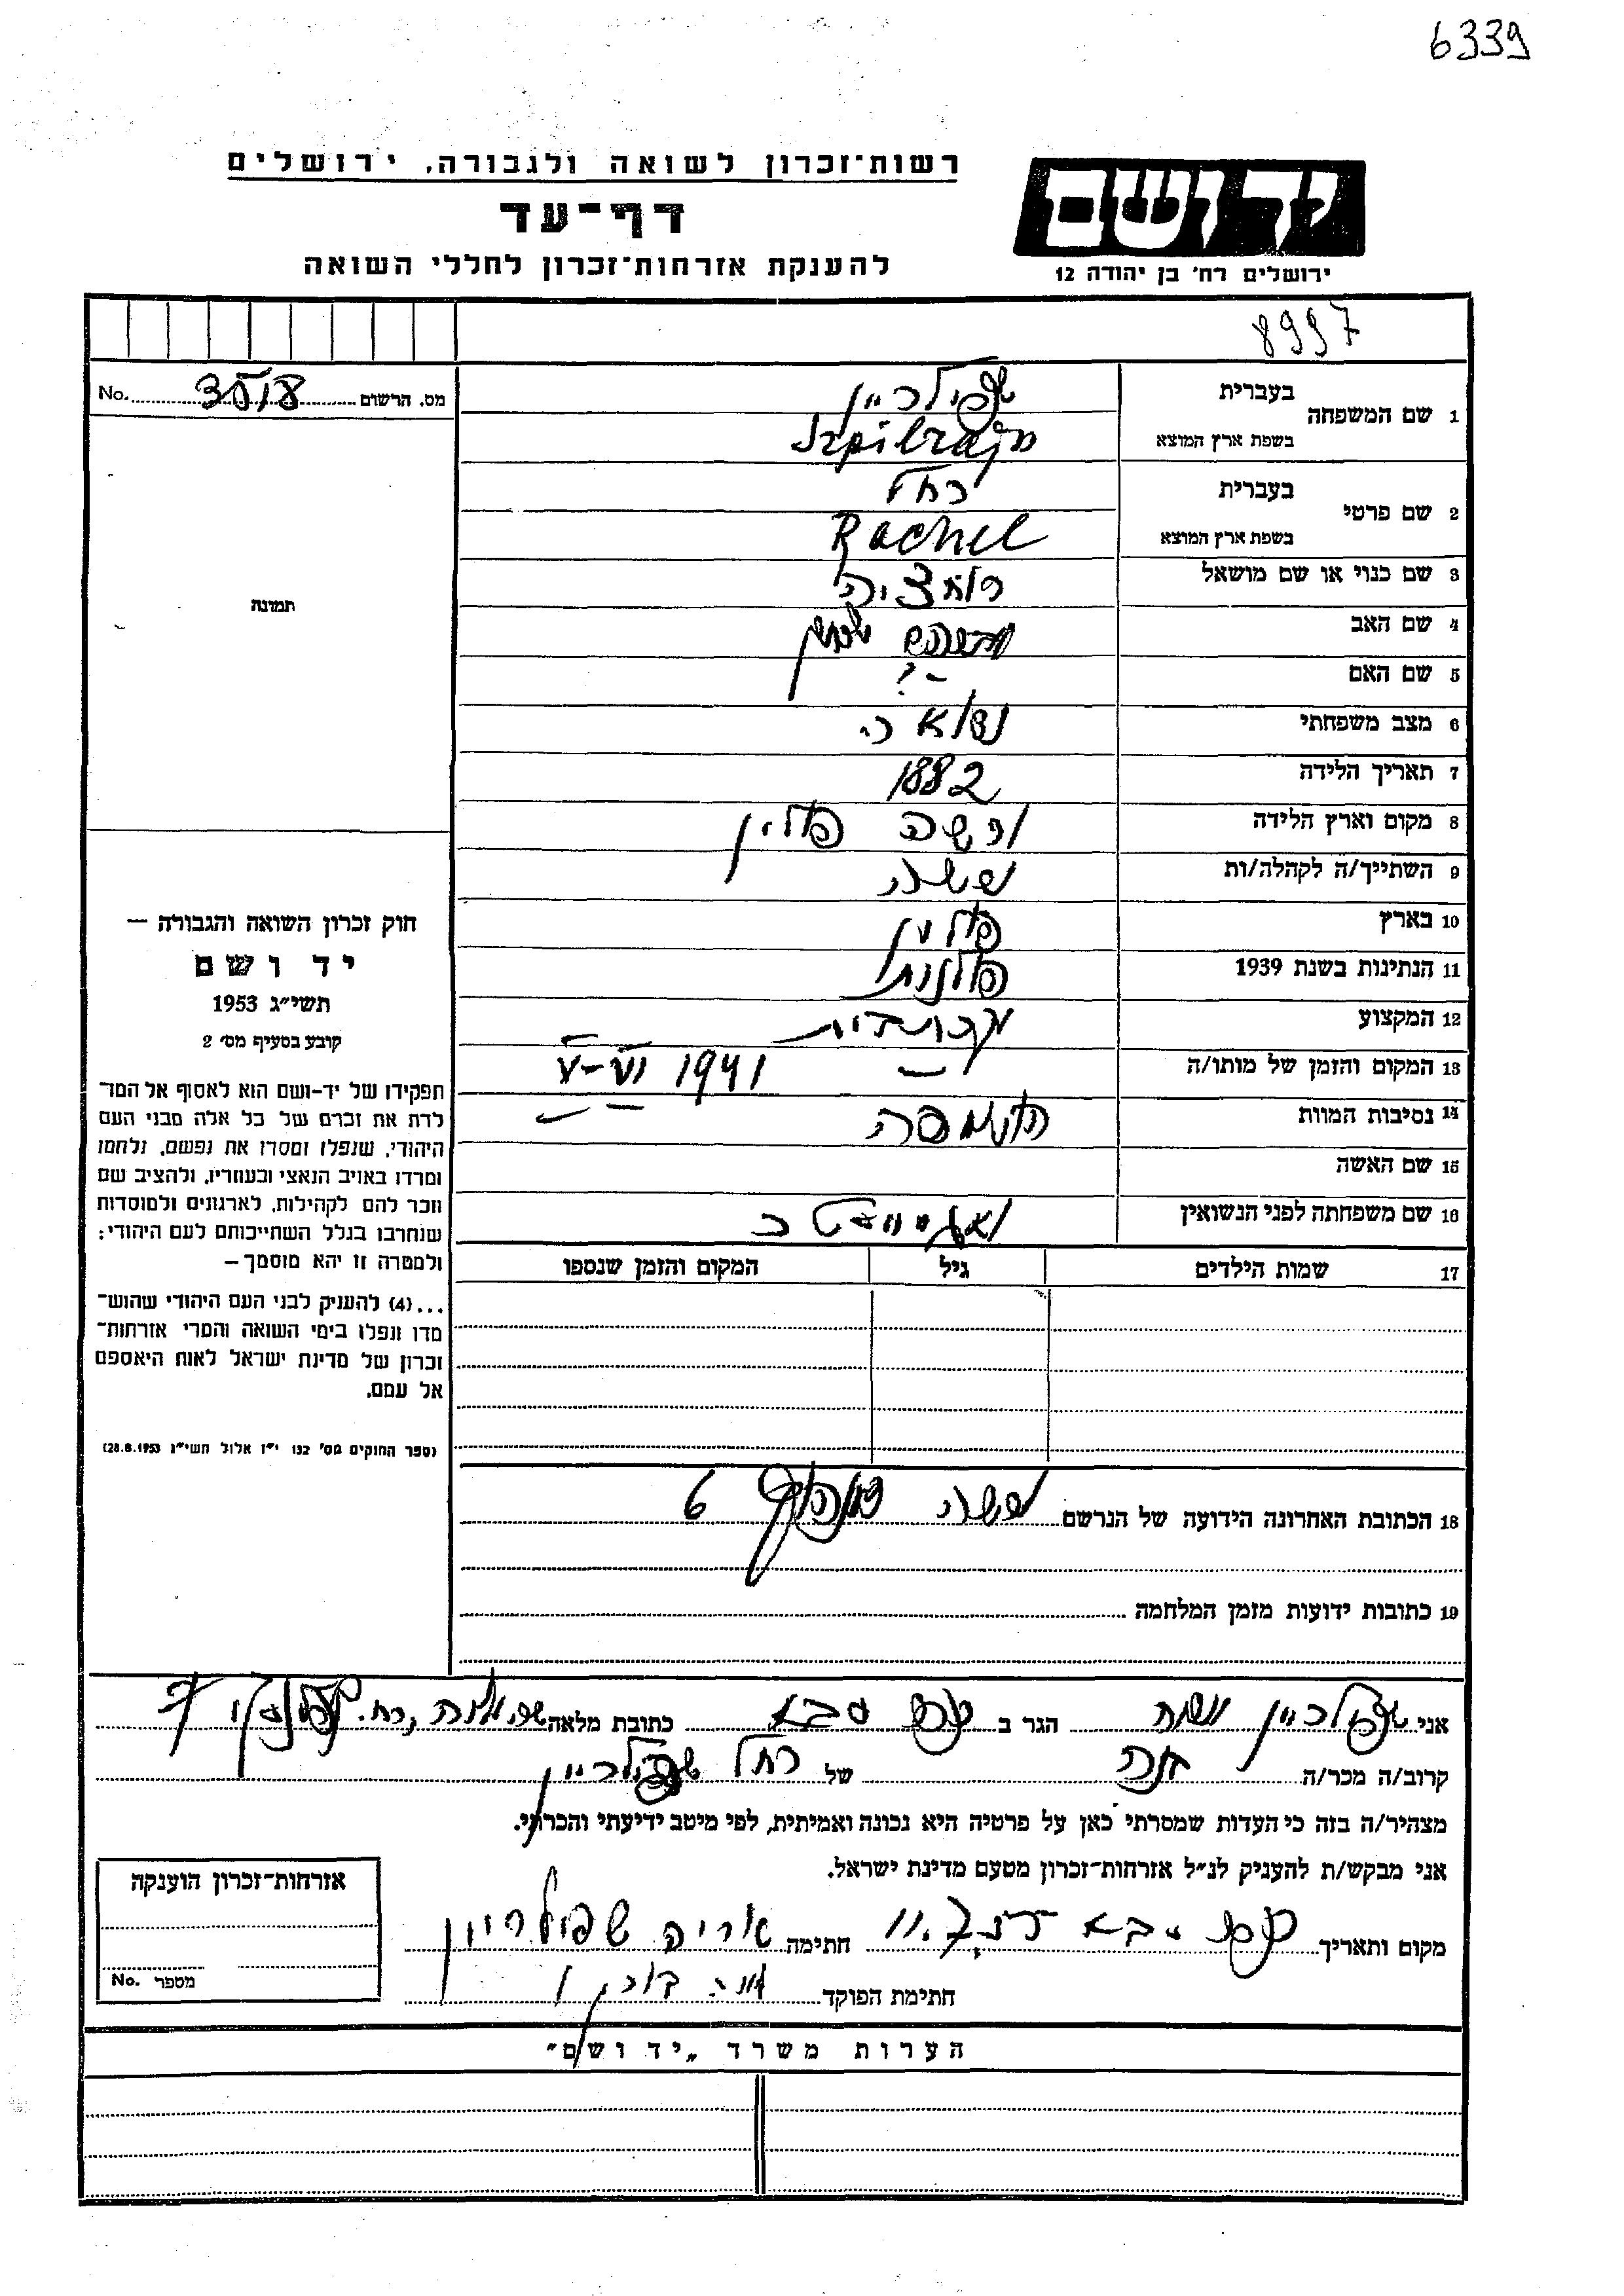 6339
רשות־זכרון לשואה ולגבורה, ירושלים
דף־עד
להענקת אזרחות־זכרון לחללי השואה
יד ושם
ירושלים רח' בן יהודה 12
8997
מס. הרשום 3518 No.
תמונה
1 שם המשפחה בעברית שפילריין
בשפת ארץ המוצא Szpilrajn
2 שם פרטי בעברית רחל
בשפת ארץ המוצא Rachel
3 שם כנוי או שם מושאל
4 שם האב
5 שם האם -?
6 מצב משפחתי נשואה
7 תאריך הלידה 1882
8 מקום וארץ הלידה ורשה פולין
9 השתייך/ה לקהלה/ות ורשה
10 בארץ פולין
11 הנתינות בשנת 1939 פולנית
12 המקצוע
13 המקום והזמן של מותו/ה — 1941 V-VI
14 נסיבות המוות
15 שם האשה
16 שם משפחתה לפני הנשואין
17 שמות הילדים גיל המקום והזמן שנספו
18 הכתובת האחרונה הידועה של הנרשם ורשה 6
19 כתובות ידועות מזמן המלחמה
חוק זכרון השואה והגבורה —
יד ושם
תשי״ג 1953
קובע בסעיף מס' 2
תפקידו של יד-ושם הוא לאסוף אל המו־
לדת את זכרם של כל אלה מבני העם
היהודי, שנפלו ומסרו את נפשם, נלחמו
ומרדו באויב הנאצי ובעוזריו, ולהציב שם
וזכר להם לקהילות, לארגונים ולמוסדות
שנחרבו בגלל השתייכותם לעם היהודי;
ולמטרה זו יהא מוסמך —
...(4) להעניק לבני העם היהודי שהוש־
מדו ונפלו בימי השואה והמרי אזרחות־
זכרון של מדינת ישראל לאות היאספם
אל עמם.
(ספר החוקים מס' 132 י״ז אלול תשי״ג 28.8.1953)
אני שפילריין הגר ב כפר סבא כתובת מלאה
קרוב/ה מכר/ה של רחל שפילריין
מצהיר/ה בזה כי העדות שמסרתי כאן על פרטיה היא נכונה ואמיתית, לפי מיטב ידיעתי והכרתי.
אני מבקש/ת להעניק לנ״ל אזרחות־זכרון מטעם מדינת ישראל.
מקום ותאריך כפר סבא חתימה אריה שפילריין
חתימת הפוקד
אזרחות־זכרון הוענקה
מספר No.
הערות משרד „יד ושם״